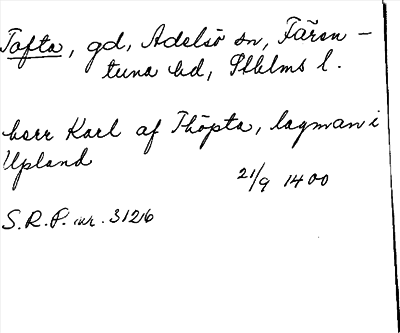 Tofta, gd, Adelsö sn, Fären-
tuna hd, Sthlms l.
herr Karl af Thöpta, lagman i
Upland
21/9 1400
S.R.P. nr. 3126